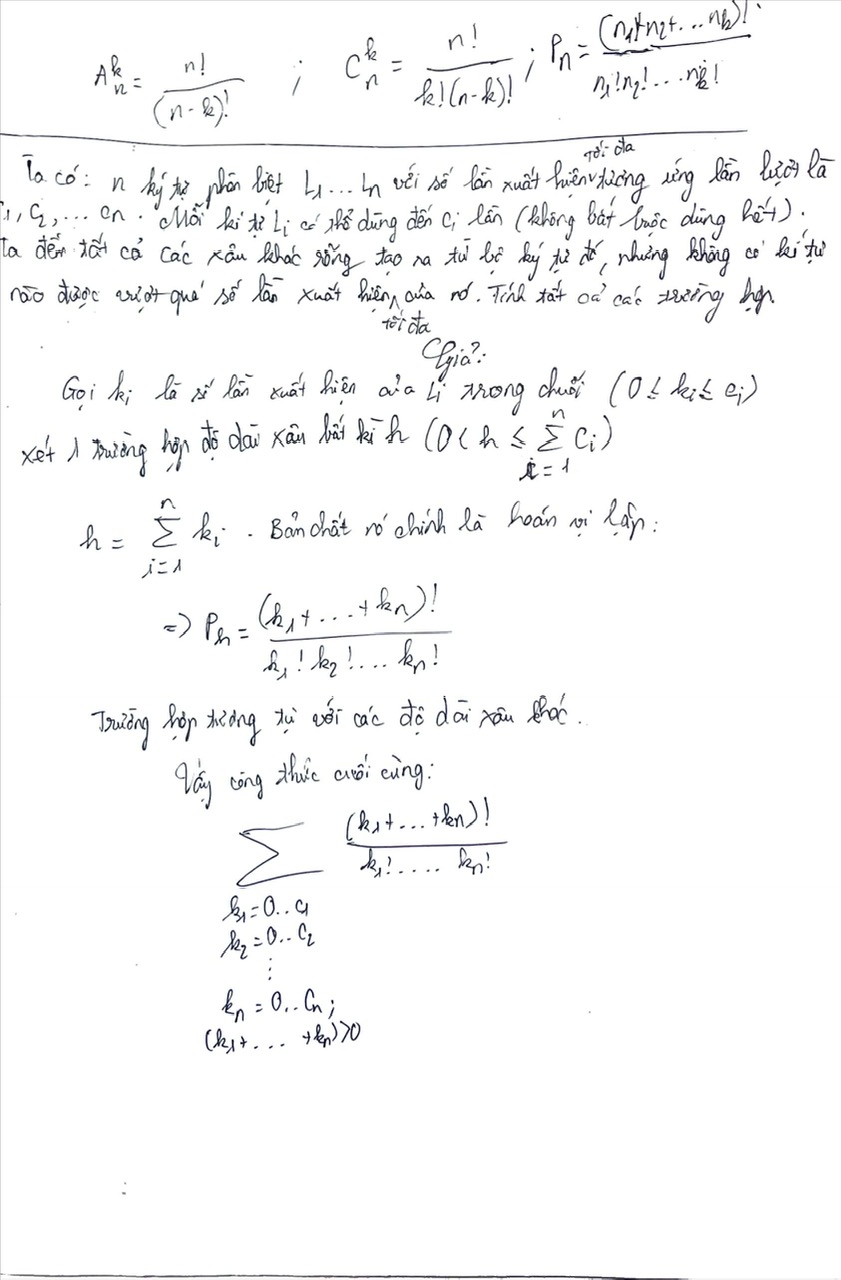 A_n^k = n!/(n-k)! ; C_n^k = n!/k!(n-k)! ; P_n = (n1+n2+...nk)!/n1!n2!...nk!
tối đa
Ta có: n ký tự phân biệt L1...Ln với số lần xuất hiện tương ứng lần lượt là
1, C2, ... Cn. Mỗi kí tự Li có thể dùng đến Ci lần (không bắt buộc dùng hết).
Ta đếm tất cả các xâu khác rỗng tạo ra từ bộ ký tự đó, nhưng không có kí tự
nào được vượt quá số lần xuất hiện của nó. Tính tất cả các trường hợp.
tối đa
Giải:
Gọi ki là số lần xuất hiện của Li trong chuỗi (0 ≤ ki ≤ ci)
xét 1 trường hợp độ dài xâu bất kì h (0 < h ≤ ∑_{i=1}^{n} Ci)
h = ∑_{i=1}^{n} ki. Bản chất nó chính là hoán vị lặp:
=> Ph = (k1+...+kn)!/k1!k2!...kn!
Trường hợp tương tự với các độ dài xâu khác.
Vậy công thức cuối cùng:
∑ (k1+...+kn)!/k1!....kn!
k1=0..c1
k2=0..C2
⋮
kn=0..Cn;
(k1+... +kn)>0